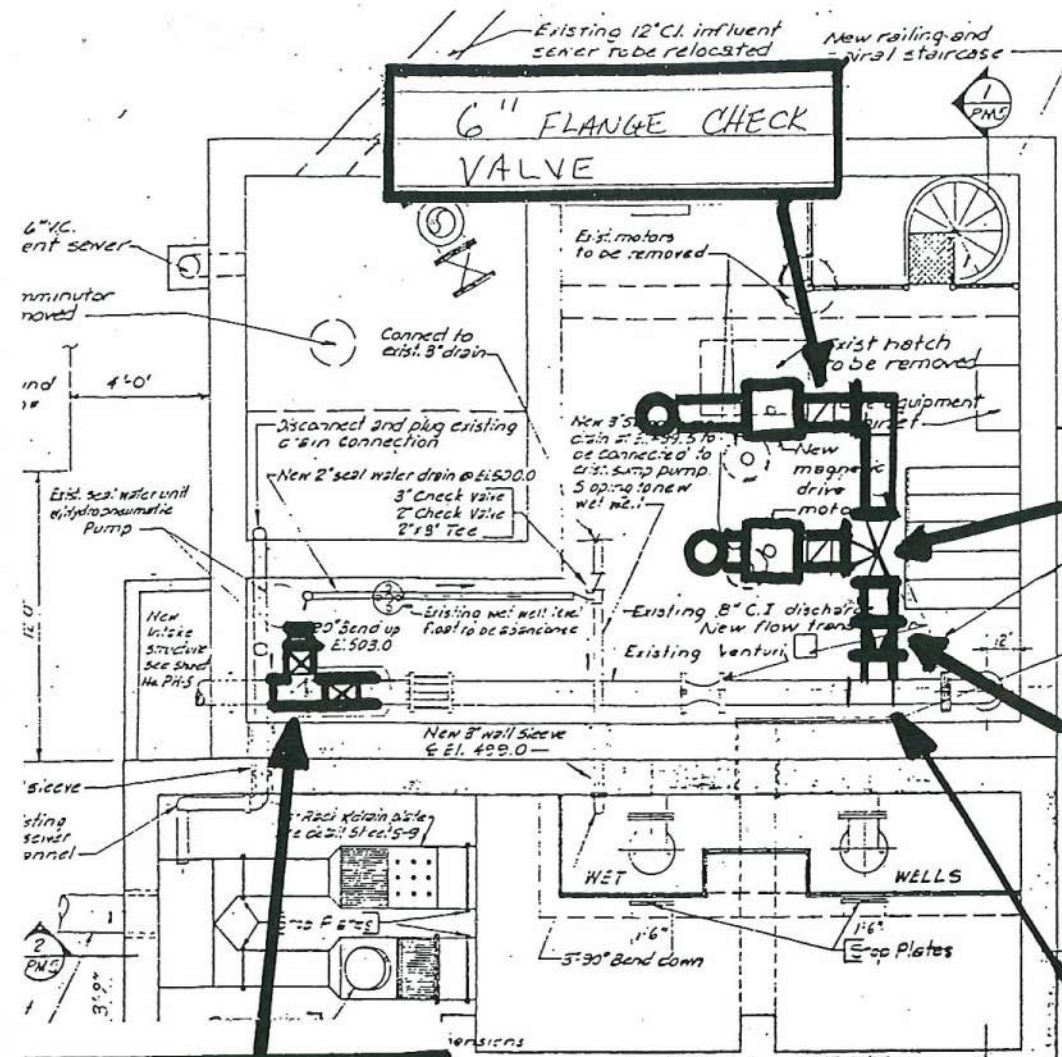 Existing 12" C.I. influent
sewer to be relocated
New railing and
spiral staircase
1
PM5
6" FLANGE CHECK
VALVE
6" V.C.
ent sewer
Exist. motors
to be removed
mminutor
moved
Connect to
exist. 3" drain
Exist hatch
to be removed
und
4'-0"
equipment
Disconnect and plug existing
drain connection
New 3"
drain at El. 499.5 to
be connected to
exist. sump pump.
Sloping to new
wet well
New
magnetic
drive
motor
New 2" seal water drain @ El. 500.0
3" Check Valve
2" Check Valve
2" x 3" Tee
Exist. seal water unit
w/hydropneumatic
Pump
12'-0"
New
Intake
structure
See Sheet
No PM-5
90° Bend up
El. 503.0
Existing wet well level
float to be abandoned
Existing 8" C.I. discharge
New flow trans
Existing Venturi
12"
New 8" wall sleeve
@ El. 499.0
sleeve
isting
sewer
annel
Rack & drain plate
see detail Sheet S-9
WET
WELLS
1'-6"
1'-6"
Stop Plates
Stop Plates
3"-90° Bend down
2
PM5
3'-9"
ensions